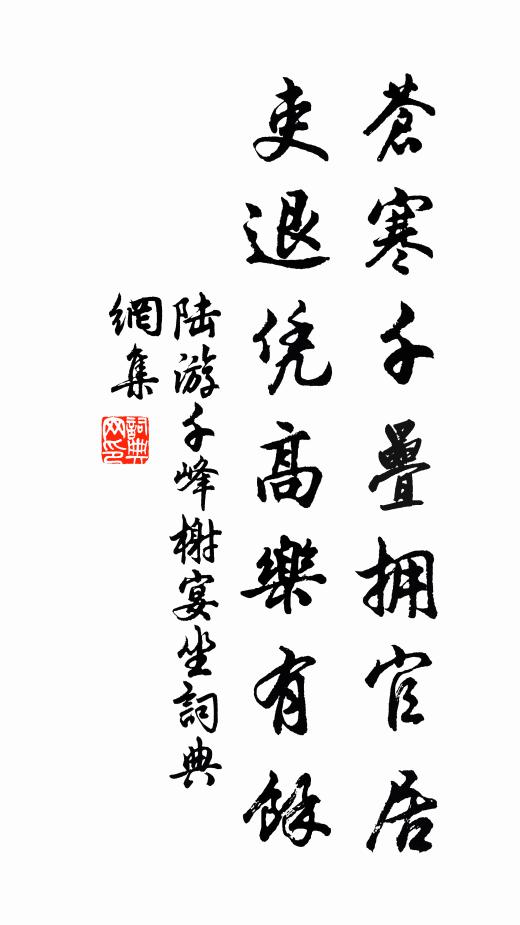 蒼寒千疊拥官居
吏退凭高樂有餘
陆游千峰榭宴坐詞典
網集
詞典
网印